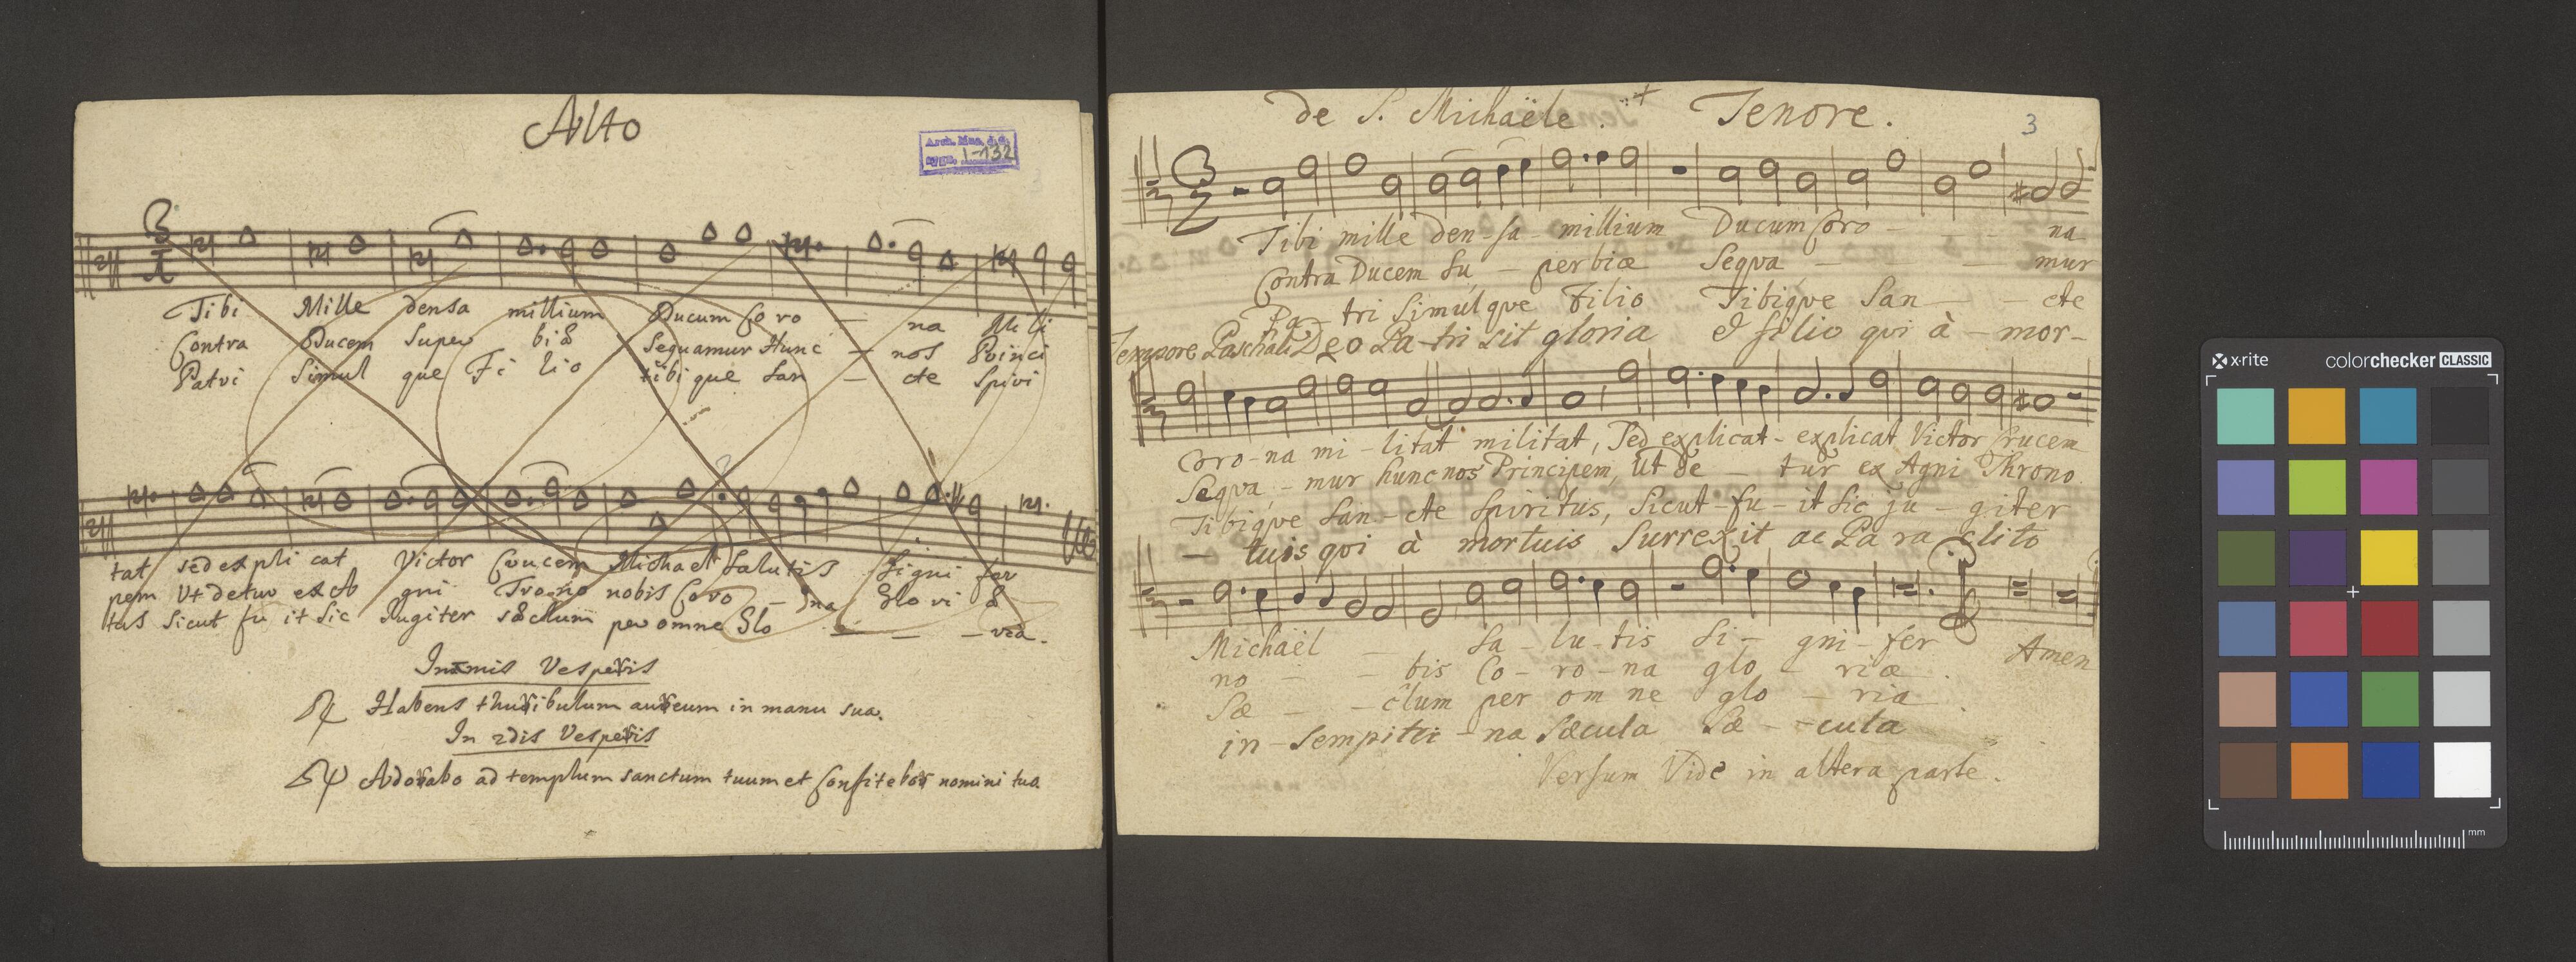 Alto
Arch. Mus. J. G.
sygn. I-132
3/1
Tibi Mille densa millium Ducum Coro — na Mili
Contra Ducem Super biæ Sequamur Hunc — nos Princi
Patri Simul que Fi lio tibi que San — cte Spiri
tat sed expli cat Victor Crucem Michael Salutis Signi fer
pem Vt detur ex A gni Trono nobis Coro — na Glo ri æ
tus Sicut fu it Sic Jugiter sæclum per omne Glo — — — ria.
In 1mis Vesperis
℟ Habens thuribulum aureum in manu sua.
In 2dis Vesperis
℟ Adorabo ad templum sanctum tuum et Confitebor nomini tuo
de S. Michaële. Tenore.
3
3/2
Tibi mille den-sa-millium Ducum Coro - - - na
Contra Ducem Su - perbiæ Seqva - - - mur
Pa-tri Simulqve Filio Tibiqve San - - cte
Tempore Paschali Deo Pa-tri sit gloria & filio qui à - mor-
Coro-na mi-litat militat, Sed explicat-explicat Victor Crucem
Seqva-mur hunc nos Principem, Ut de - tur ex Agni Throno
Tibiqve San-cte Spiritus, Sicut-fu-it sic ju-giter
- tuis qui à mortuis Surrexit ac Pa ra clito
Michaël - Sa-lu-tis Si-gni-fer Amen
no - - bis Co-ro-na glo - riæ.
Sæ - - clum per om ne glo - ria.
in-sempiter-na Sæcula Sæ--cula
Versum Vide in altera parte.
x-rite colorchecker CLASSIC
mm